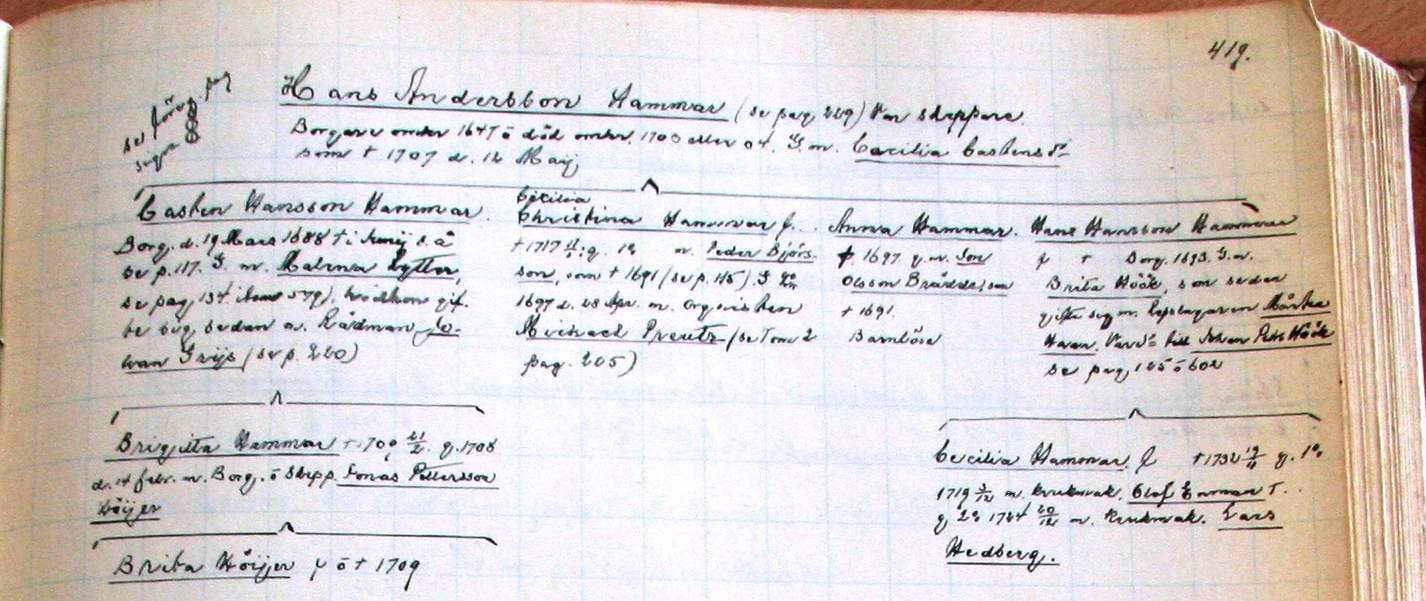 419.
se föreg. pag
Hans Andersson Hammar (se pag 229) Var skeppare.
Borgare under 1647 ö död under 1703 eller 04. G. m. Cæcilia Castensdr
som † 1707 d. 12 Maij
Casten Hansson Hammar.
Borg. d. 19 Mars 1688 † i Junij s. å
se p. 117. G. m. Malena Lytter,
se pag 134 item 579). hvilken gif.
te sig sedan m. Rådman Jo-
han Grijs (se p. 220)
Cecilia
Christina Hammar f.
† 1717 g. 1o m. Peder Björs.
son, som † 1691 (se p. 45). G 2o
1697 d. 28 Apr. m. Organisten
Michael Preutz (se Tom 2
pag. 205)
Anna Hammar.
† 1697. g. m. Jon
Olsson Bräddsson
† 1691.
Barnlösa
Hans Hansson Hammar
f † Borg. 1693. G. m.
Brita Höök, som sedan
gifte sig m. Mårten
se pag 125 ö 602
Brigitta Hammar † 1709 21/2. g. 1708
d. 14 febr. m. Borg. ö Skepp. Jonas Pettersson
Höijer
Brita Höijer f ö † 1709
Cecilia Hammar. f † 1732 19/11 g. 1o
1719 3/12 m. krukmak. Olof Enman T.
g 2o 1724 20/12 m. krukmak. Lars
Hedberg.